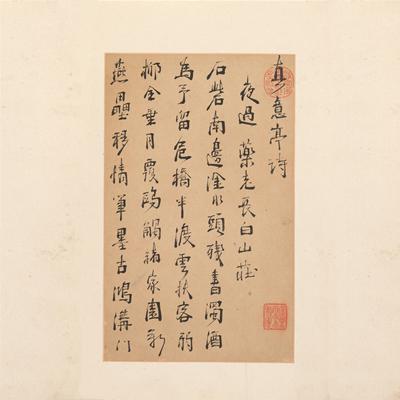 真意亭詩
夜過 藥老長白山莊
石砦南邊滏水頭殘書濁酒
為予留危橋半渡雲扶客弱
柳全垂月覆鷗觸緒家園新
燕壘移情筆墨古鴻溝门